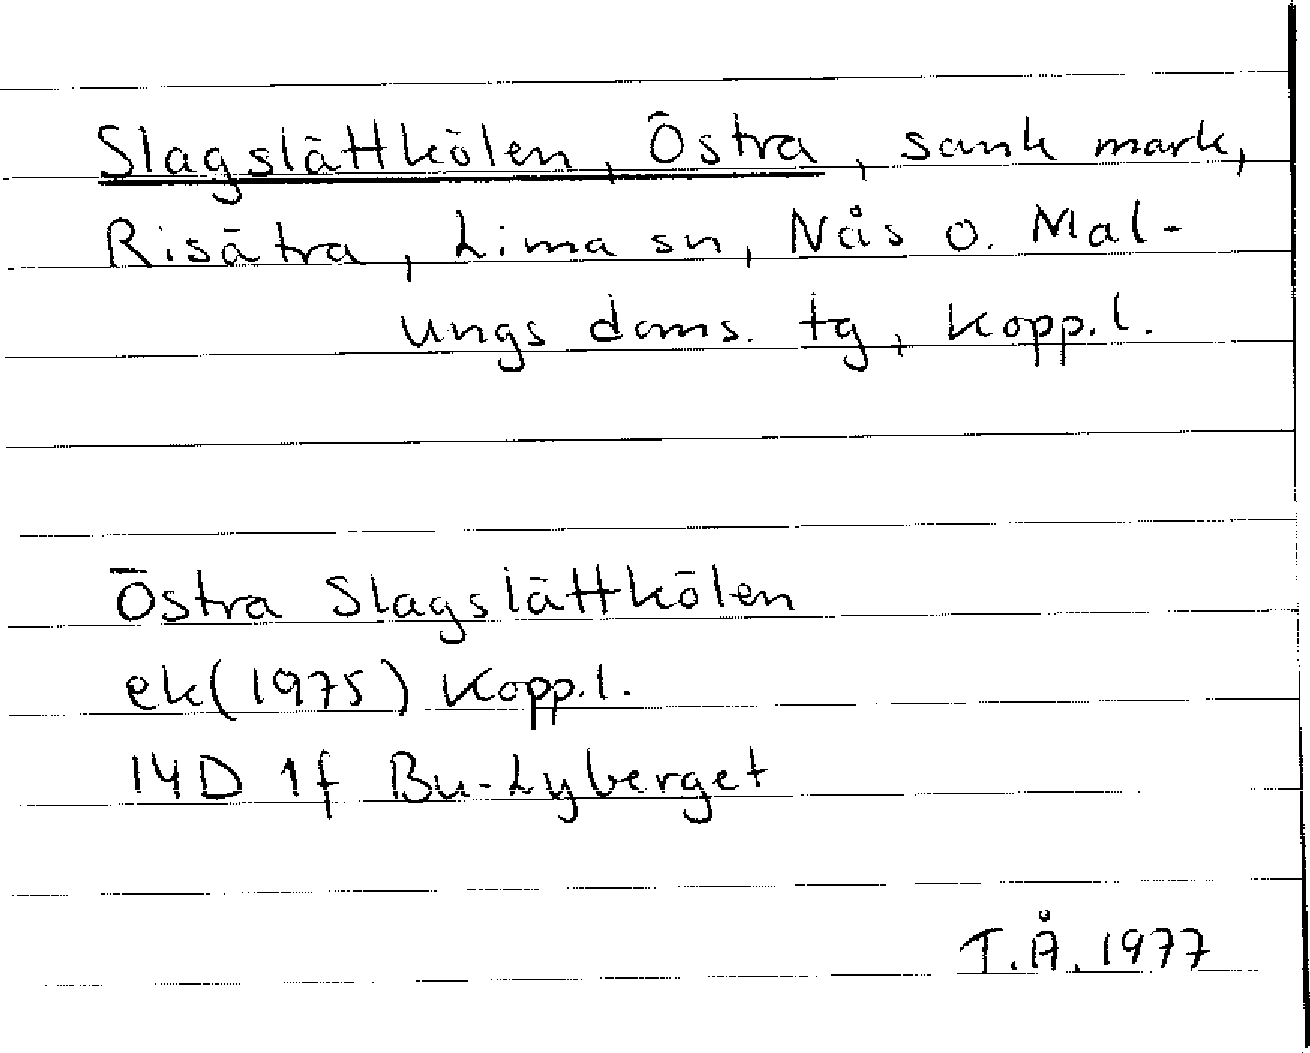 Slagslättkölen, Östra, sank mark,
Risätra, Lima sn, Nås o. Mal-
ungs doms. tg, Kopp.l.
Östra Slagslättkölen
ek(1975) Kopp.l.
14D 1f Bu-Lyberget
T.Å. 1977